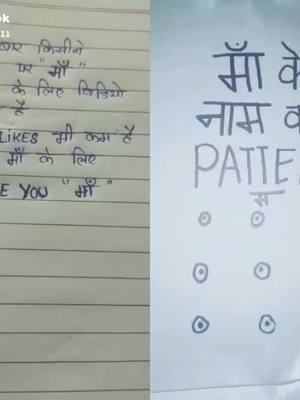 ok
11
किसीने
पर "माँ"
के लिए विडियो
है
LIKES भी कम है
माँ के लिए
E YOU "माँ"
माँ के
नाम क
PATTE
म